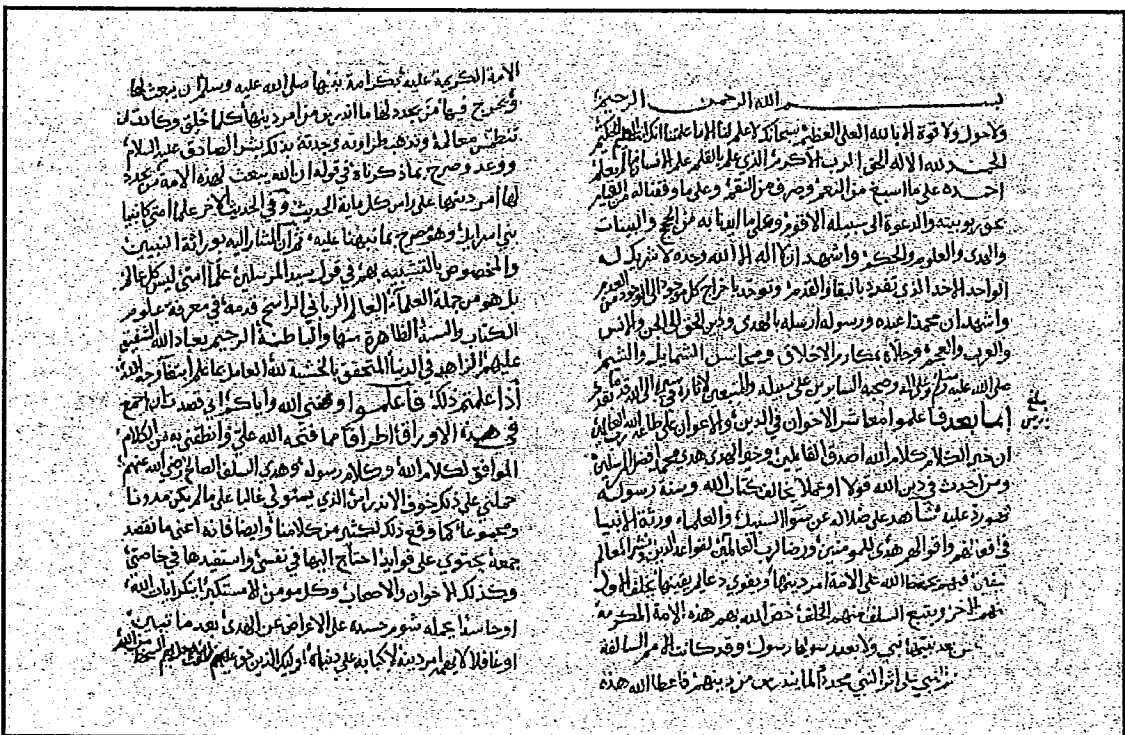 بسم الله الرحمن الرحيم
ولا حول ولا قوة الا بالله العلي العظيم سبحانك لا علم لنا الا ما علمتنا انك انت العليم الحكيم
الحمد لله الاله الحق الرب الاكرم الذي علم بالقلم علم الانسان ما لم يعلم
احمده على ما اسبغ من النعم وصرف من النقم وعلى ما وفقنا له من القيام
بحق ربوبيته والدعوة الى سبيله الاقوم وعلى ما اتينا به من الحج والبينات
والهدى والعلوم والحكم واشهد ان لا اله الا الله وحده لا شريك له
الواحد الاحد الذي تفرد بالبقاء والقدم وتوحد باخراج كل موجود الى الوجود من العدم
واشهد ان محمدا عبده ورسوله ارسله بالهدى ودين الحق الى الجن والانس
والعرب والعجم وحلاه بمكارم الاخلاق ومحاسن الشمايل والشيم
صلى الله عليه وسلم وعلى اله وصحبه السايرين على سبيله والمتبعين لاثاره
اما بعد فاعلموا معاشر الاخوان في الدين والاعوان على طاعة الله رب العالمين
ان خير الكلام كلام الله اصدق القايلين وخير الهدى هدى محمد المرسلين
ومن احدث في دين الله قولا او عملا يخالف كتاب الله وسنة رسوله
فهو رد عليه شاهد على ضلاله عن سوا السبيل والعلماء ورثة الانبيا
في افعالهم واقوالهم هدى للمومنين العالم
فبهم يحفظ الله على الامة امر دينها ويقوي دعايم يقينها يخلف الاول
منهم الاخر ويتبع السلف منهم الخلف خص الله بهم هذه الامة المكرمة
بعد نبيها نبي ولا بعد رسولها رسول وقد كانت الامم السالفة
النبي على اثر النبي مجددا لما يندرس من دينهم فاعطا الله هذه
الامة الكريمة عليه بكرامة نبيها صلى الله عليه وسلم ان يبعث لها
ويخرج فيها من يجدد لها ما اندرس من امر دينها كلما خلق وكادت ان
تنطمس معالمه وتذهب طراوته وجدته بذلك بشر الصادق عليه السلام
ووعد وصرح بما ذكرناه في قوله ان الله يبعث لهذه الامة من يجدد
لها امر دينها على راس كل ماية الحديث وفي الحديث الاخر علما امتي كانبيا
بني اسرايل وهو صرح بما نبهنا عليه ثم ان المشار اليه بوراثة النبيين
والمخصوص بالتشبيه بهم في قول سيد المرسلين علما امتي ليس كل عالم
بل هو من جملة العلماء العالم الرباني الراسخ قدمه في معرفة علوم
الكتاب والسنة الظاهرة منها والباطنة الرحيم بعباد الله الشفيق
عليهم الزاهد في الدنيا المتحقق بالخشية لله العامل بما علم ابتغا وجه الله
اذا علمتم ذلك فاعلموا وفقني الله واياكم اني قصدت ان اجمع
في هذه الاوراق اطرافا مما فتحه الله علي وانطقني به من الكلام
الموافق لكلام الله وكلام رسوله وهدي السلف الصالح رضي الله عنهم
حملني على ذلك خوف الاندراس الذي يستولي غالبا على ما لم يكن مدونا
ومجموعا كما وقع ذلك لكثير من كلامنا وايضا فانه اعني ما اقصد
جمعه يحتوي على فوايد احتاج اليها في نفسي واستفيدها في خاصتي
وكذلك الاخوان والاصحاب وكل مومن لا مستكبرا ينكر ايات الله
او حاسدا يحمله شوم حسده على الاعراض عن الهدى بعد ما تبين
او غافلا لا يهمه امر دينه لاكبابه على دنياه اوليك الذين